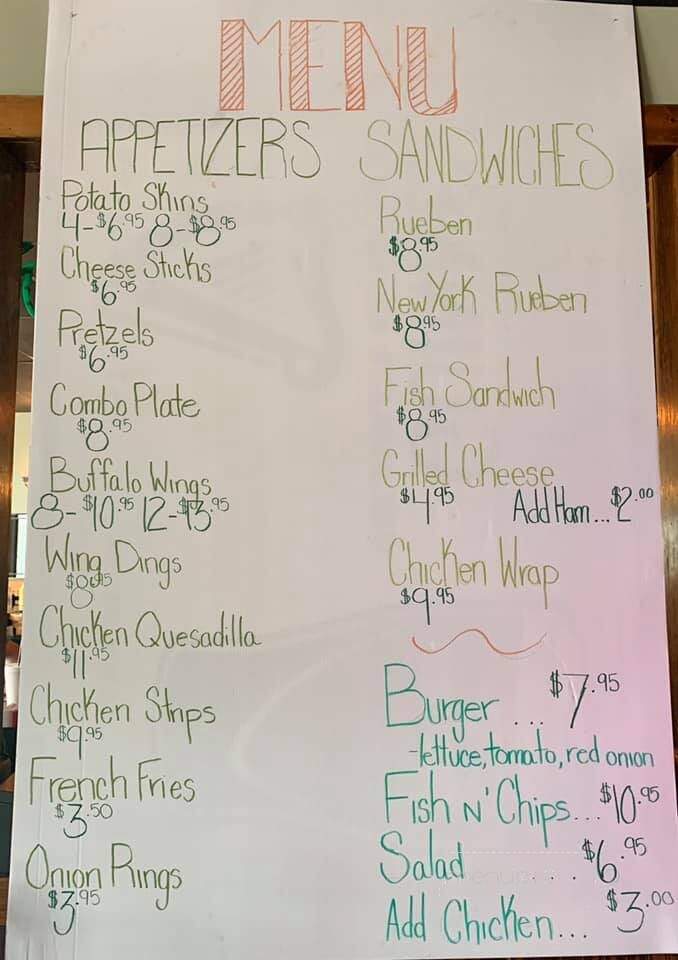 MENU
APPETIZERS
Potato Skins
4-$6.95 8-$8.95
Cheese Sticks
$6.95
Pretzels
$6.95
Combo Plate
$8.95
Buffalo Wings
8-$10.95 12-$13.95
Wing Dings
$8.95
Chicken Quesadilla
$11.95
Chicken Strips
$9.95
French Fries
$3.50
Onion Rings
$3.95
SANDWICHES
Rueben
$8.95
New York Rueben
$8.95
Fish Sandwich
$8.95
Grilled Cheese
$4.95 Add Ham...$2.00
Chicken Wrap
$9.95
Burger ... $7.95
-lettuce, tomato, red onion
Fish N' Chips...$10.95
Salad .... $6.95
Add Chicken... $3.00